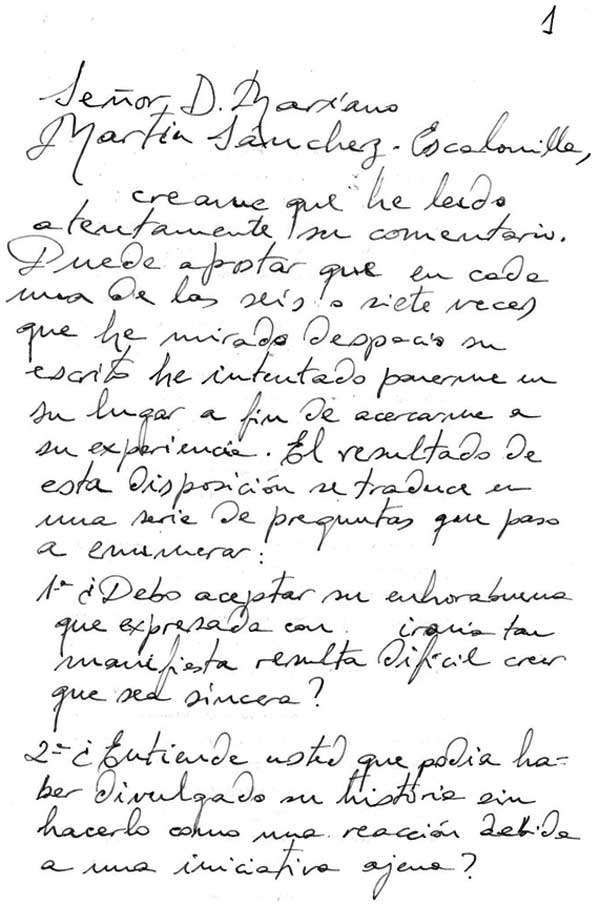 1
Señor D. Mariano
Martín Sánchez-Escalonilla,
creame que he leido
atentamente su comentario.
Puede apostar que en cada
una de las seis o siete veces
que he mirado despacio su
escrito he intentado ponerme en
su lugar a fin de acercarme a
su experiencia. El resultado de
esta disposición se traduce en
una serie de preguntas que paso
a enumerar:
1ª ¿Debo aceptar su enhorabuena
que expresada con ironía tan
manifiesta resulta difícil creer
que sea sincera?
2ª ¿Entiende usted que podia ha=
ber divulgado su história sin
hacerlo como una reacción debida
a una iniciativa ajena?